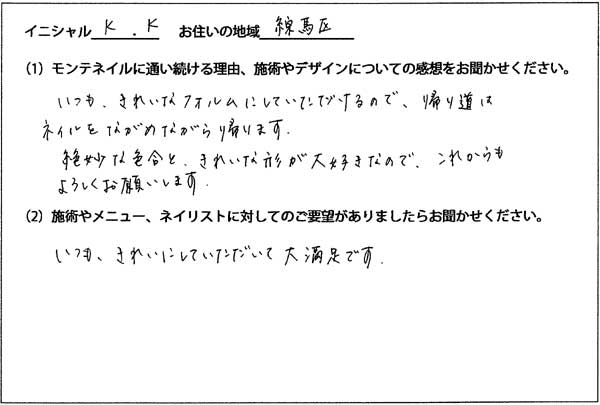 イニシャル K . K お住いの地域 練馬区
(1) モンテネイルに通い続ける理由、施術やデザインについての感想をお聞かせください。
いつも、きれいなフォルムにしていただけるので、帰り道は
ネイルをながめながら帰ります.
絶妙な色合と、きれいな形が大好きなので、これからも
よろしくお願いします.
(2) 施術やメニュー、ネイリストに対してのご要望がありましたらお聞かせください。
いつも、きれいにしていただいて大満足です.